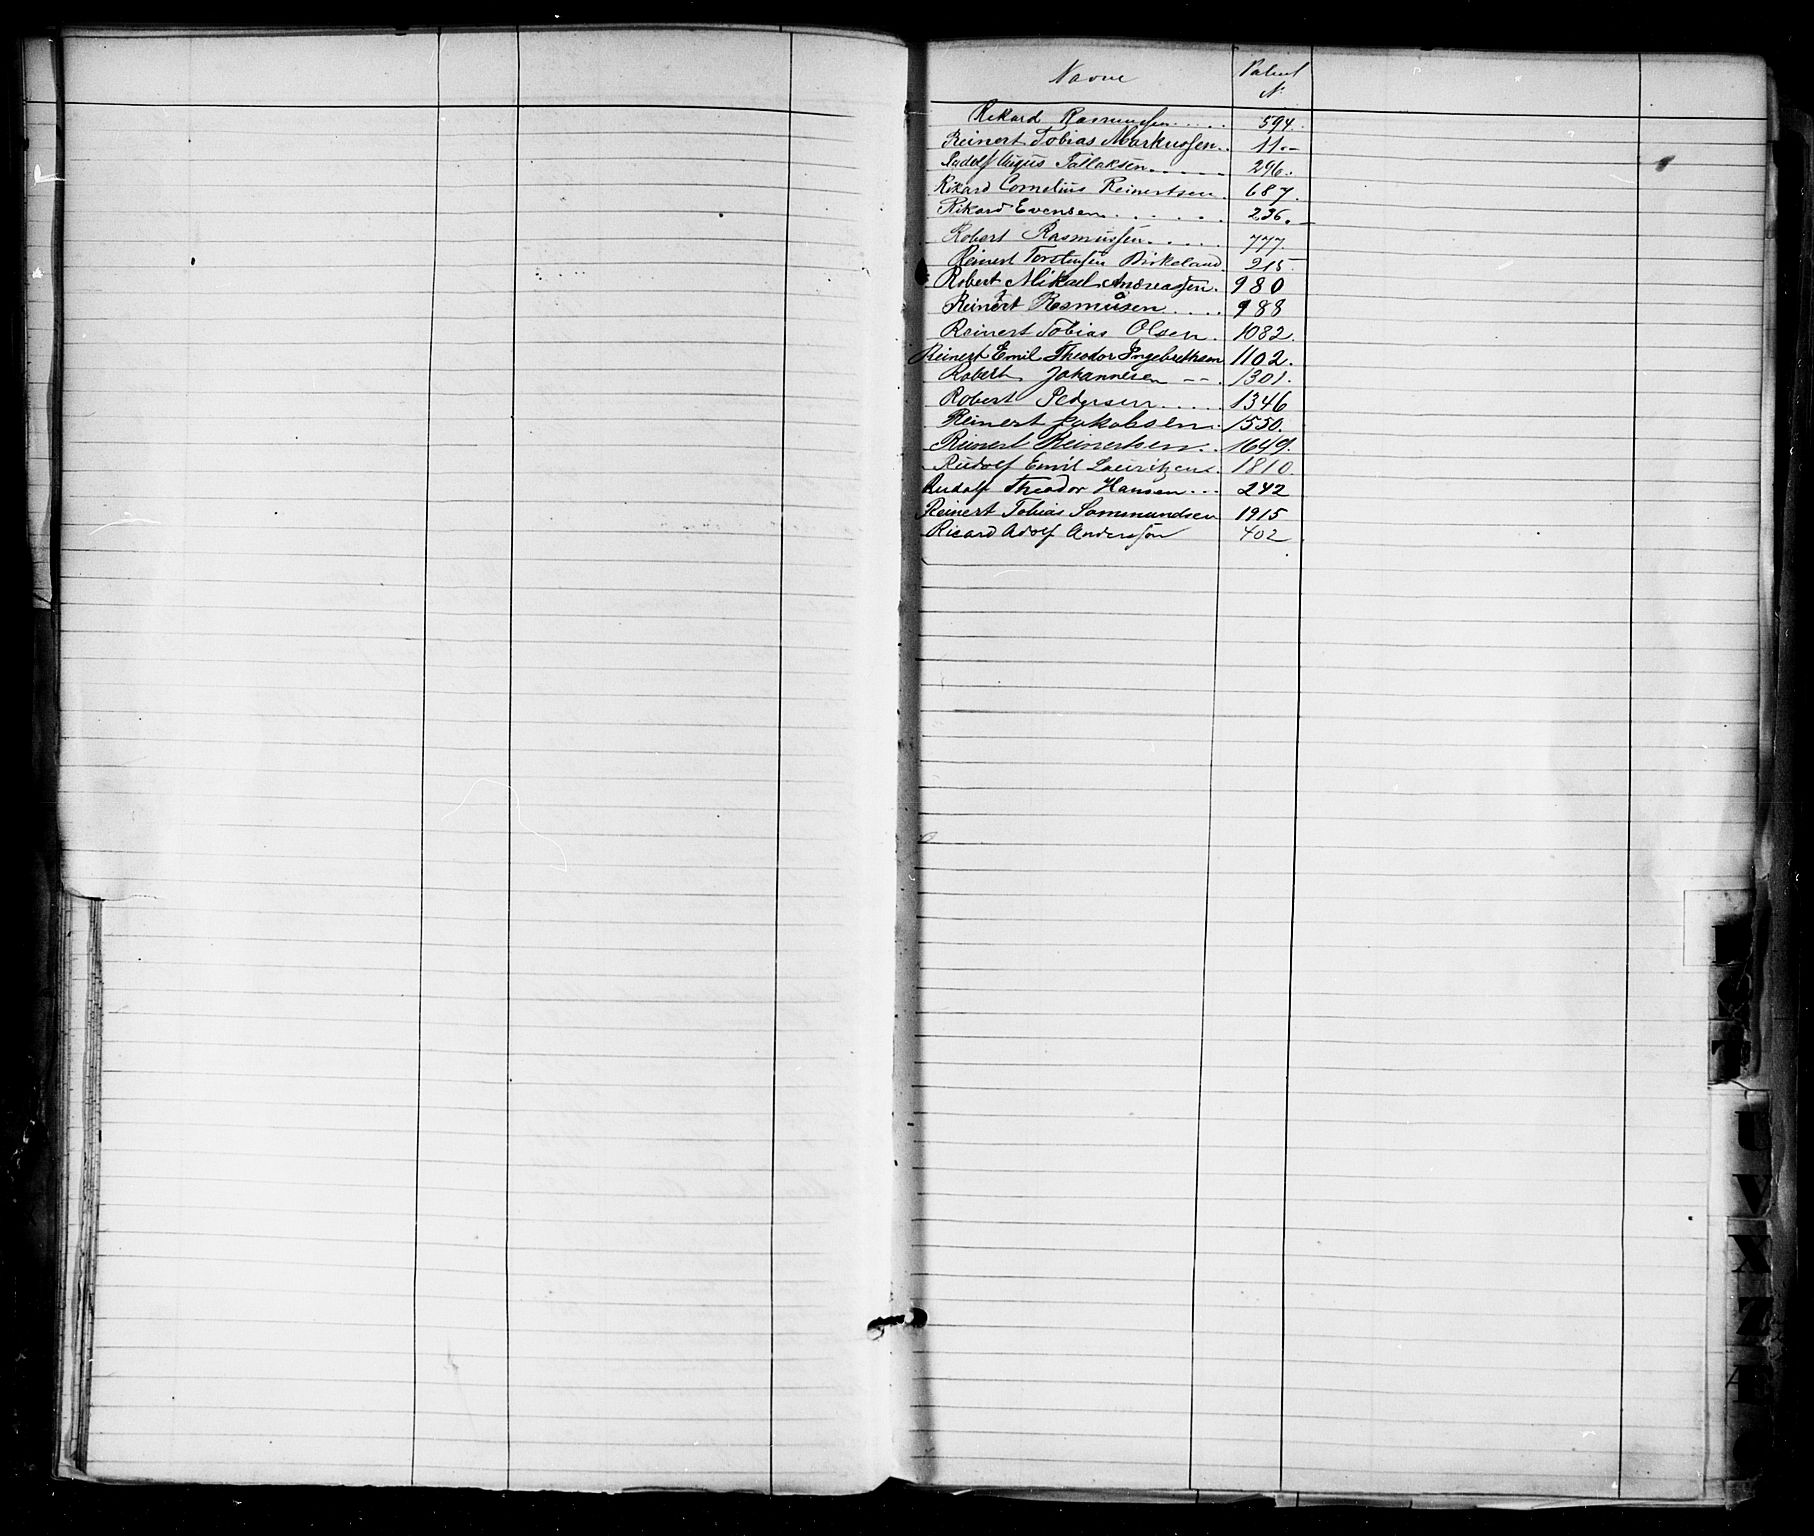 Navne Patent N.
Rikard Rasmussen..... 594.
Reinert Tobias Markussen.. 11.-
Rudolf August Tallaksen..... 296.
Rikard Cornelius Reinertsen. 687.
Rikard Evensen...... 236.-
Robert Rasmussen..... 777.
Reinert Torstensen Birkeland. 215.
Robert Mikael Andreassen. 980
Reinert Rasmusen.... 988
Reinert Tobias Olsen. 1082.
Reinert Emil Theodor Ingebrethsen 1102.
Robert Johannesen --. 1301.
Robert Pedersen..... 1346
Reinert Jakobsen. 1550.
Reinert Reinertsen.. 1649.
Rudolf Emil Lauritzen. 1810
Rudolf Theodor Hansen... 242
Reinert Tobias Sommundsen 1915
Ricard Adolf Anderssen 402
S
T
U
V
X
Z
Æ